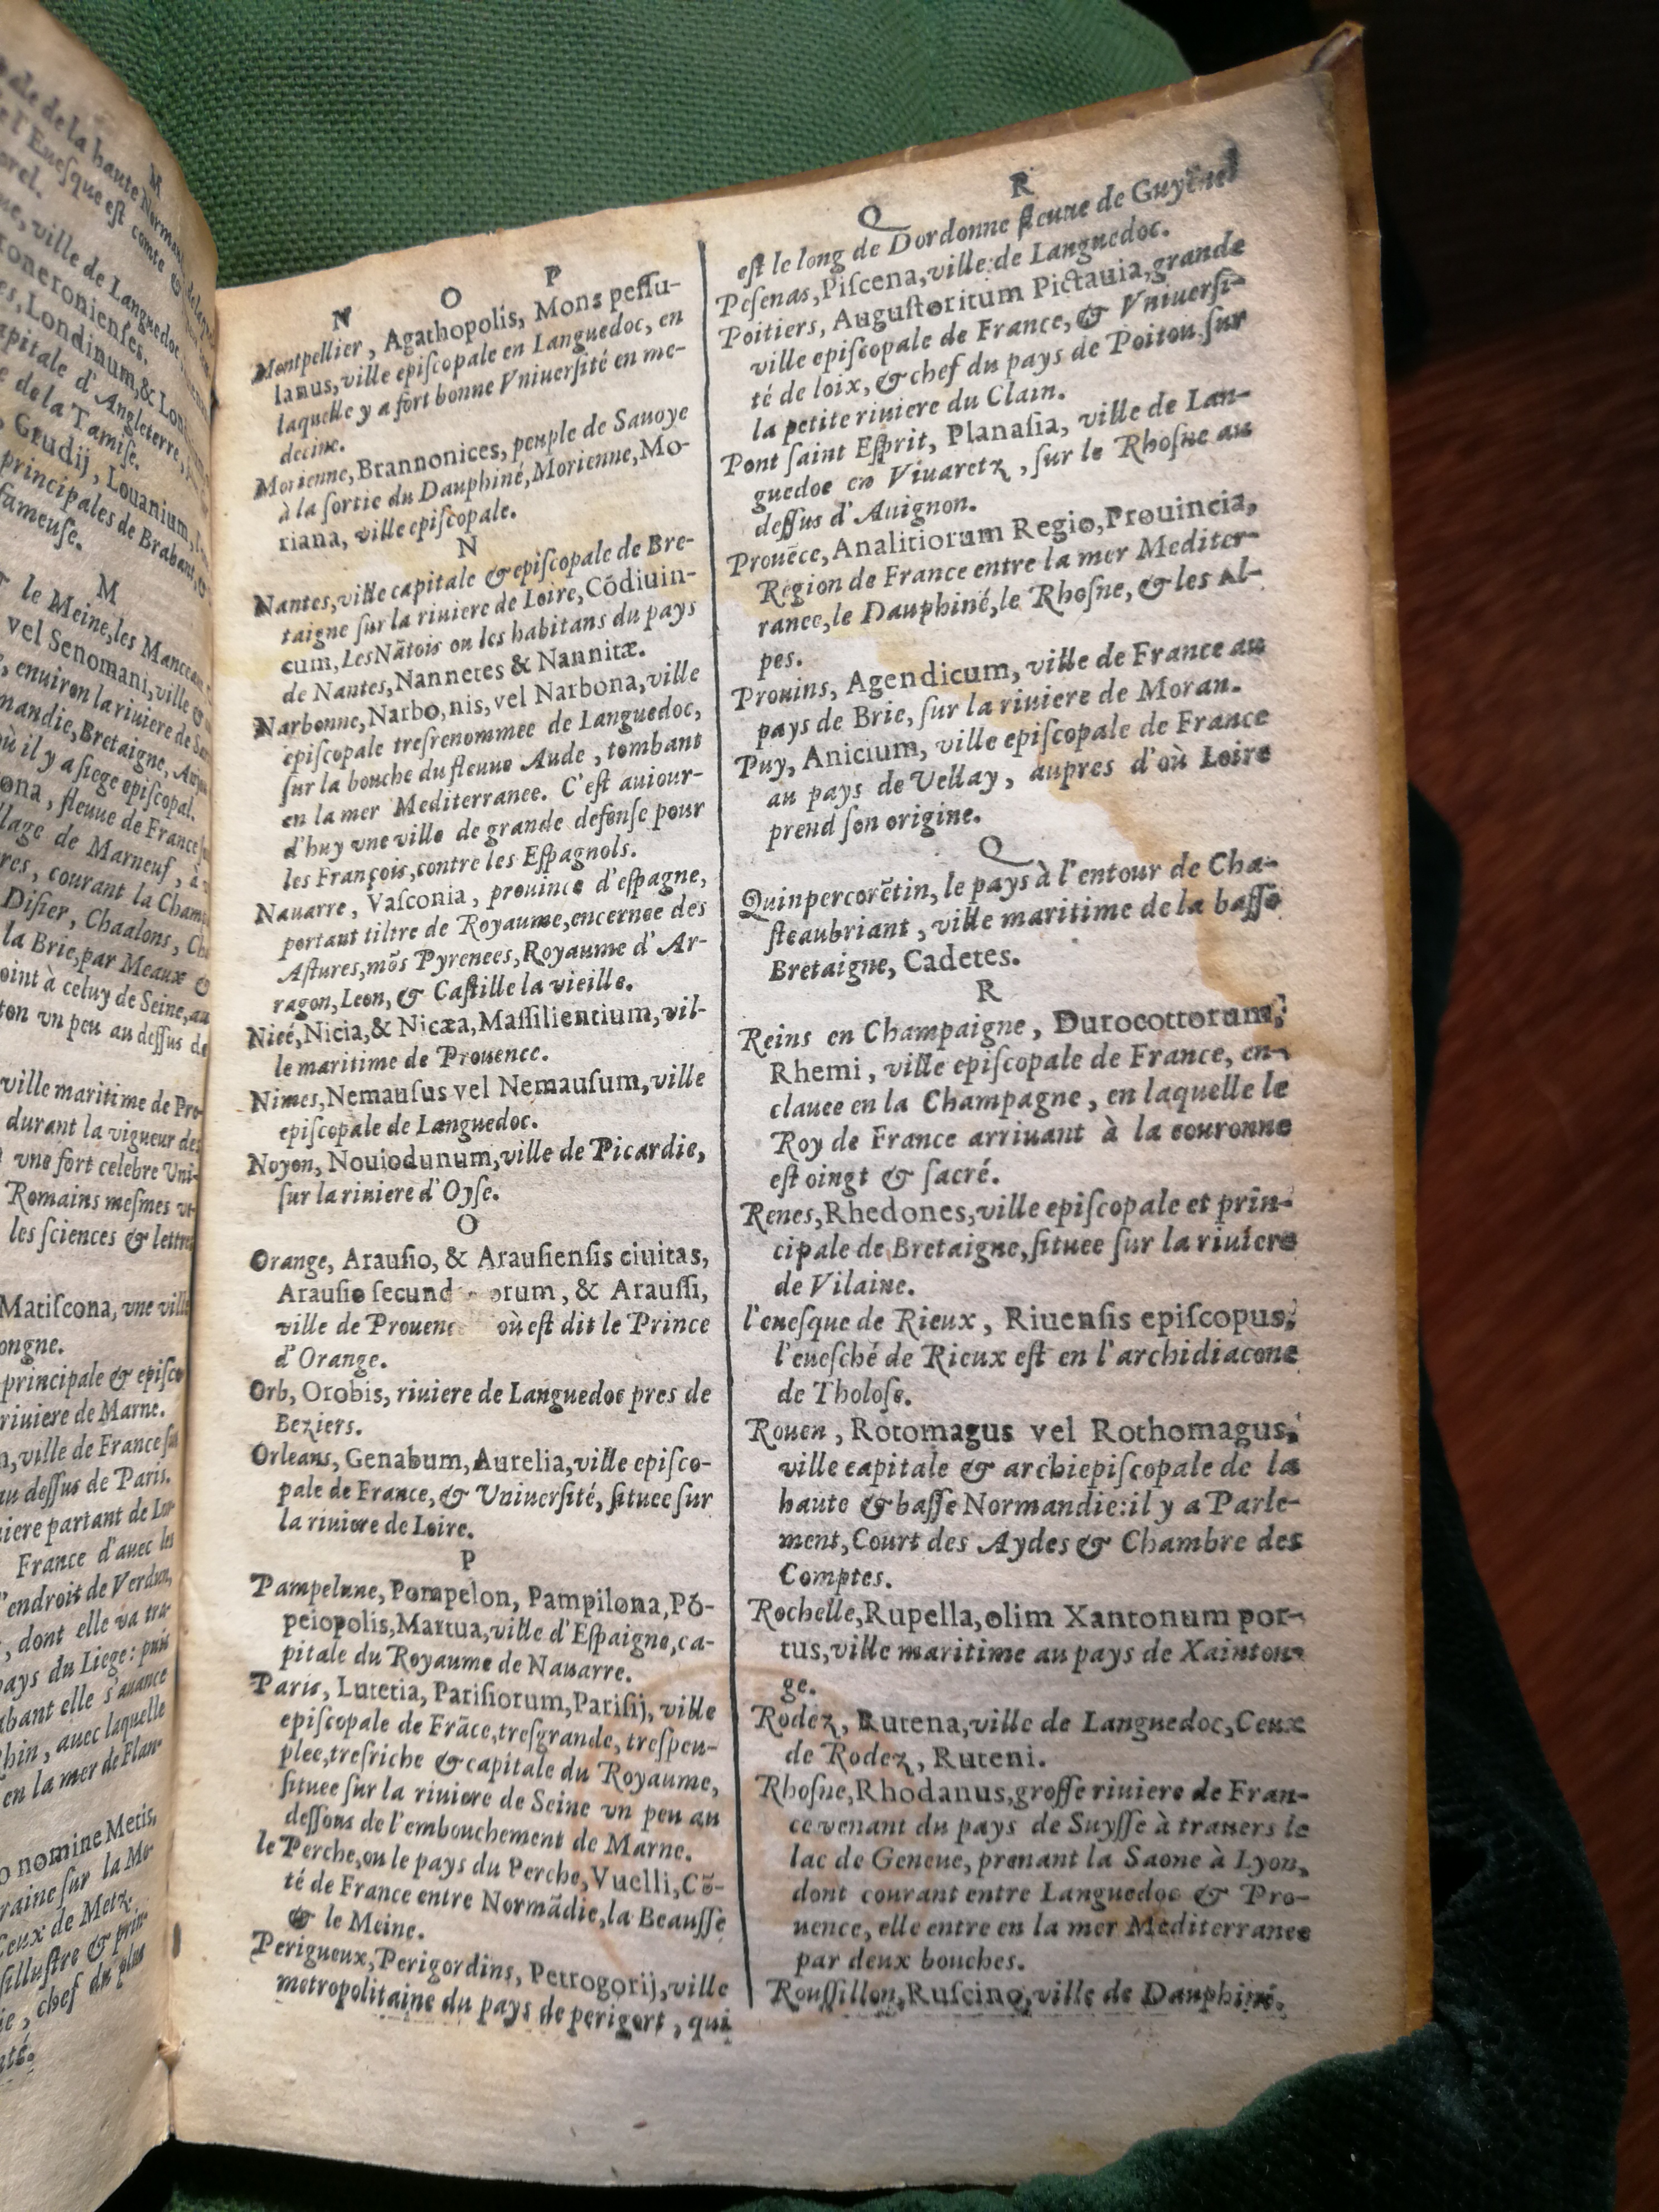 M
ville de Languedoc
Londinum, &
capitale d'Angleterre,
de la Tamise.
Grudij, Louanium,
principales de Brabant,
fameuse.
M
le Meine, les Manceaux
vel Senomani, ville &
enuiron la riuiere de
Bretaigne,
où il y a siege episcopal.
fleuue de France
village de Marneuf, à
courant la
Disier, Chaalons,
la Brie, par Meaux &
à celuy de Seine, au
vn peu au dessus de
ville maritime de Pro-
durant la vigueur des
vne fort celebre Vni-
Romains mesmes
les sciences & lettres
Matiscona, vne ville
principale & episco
riuiere de Marne.
ville de France sur
au dessus de Paris.
riuiere partant de
France d'auec les
l'endroit de Verdun,
dont elle va
pays du Liege: puis
elle s'auance
auec laquelle
en la mer de Flan-
nomine Metis,
sur la Mo-
Ceux de Metz.
illustre & prin-
chef du plus
N O P
Montpellier, Agathopolis, Mons pessu-
lanus, ville episcopale en Languedoc, en
laquelle y a fort bonne Vniuersité en me-
decine.
Morienne, Brannonices, peuple de Sauoye
à la sortie du Dauphiné, Morienne, Mo-
riana, ville episcopale.
N
Nantes, ville capitale & episcopale de Bre-
taigne sur la riuiere de Loire, Cõdiuin-
cum, Les Nãtois ou les habitans du pays
de Nantes, Nannetes & Nannitæ.
Narbonne, Narbo, nis, vel Narbona, ville
episcopale tresrenommee de Languedoc,
sur la bouche du fleuue Aude, tombant
en la mer Mediterranee. C'est auiour-
d'huy vne ville de grande defense pour
les François, contre les Espagnols.
Nauarre, Vasconia, prouince d'espagne,
portant tiltre de Royaume, encernee des
Astures, mõs Pyrenees, Royaume d'Ar-
ragon, Leon, & Castille la vieille.
Nicé, Nicia, & Nicæa, Massilientium, vil-
le maritime de Prouence.
Nimes, Nemausus vel Nemausum, ville
episcopale de Languedoc.
Noyon, Nouiodunum, ville de Picardie,
sur la riuiere d'Oyse.
O
Orange, Arausio, & Arausiensis ciuitas,
Arausio secund orum, & Araussi,
ville de Prouenc où est dit le Prince
d'Orange.
Orb, Orobis, riuiere de Languedoc pres de
Beziers.
Orleans, Genabum, Aurelia, ville episco-
pale de France, & Vniuersité, situee sur
la riuiere de Loire.
P
Pampelune, Pompelon, Pampilona, Põ-
peiopolis, Martua, ville d'Espaigne, ca-
pitale du Royaume de Nauarre.
Paris, Lutetia, Parisiorum, Parisij, ville
episcopale de Frãce, tresgrande, trespeu-
plee, tresriche & capitale du Royaume,
situee sur la riuiere de Seine vn peu au
dessous de l'embouchement de Marne.
le Perche, ou le pays du Perche, Vuelli, Cõ-
té de France entre Normãdie, la Beausse
& le Meine.
Perigueux, Perigordins, Petrogorij, ville
metropolitaine du pays de perigort, qui
Q R
est le long de Dordonne fleuue de Guyëne
Pesenas, Piscena, ville de Languedoc.
Poitiers, Augustoritum Pictauia, grande
ville episcopale de France, & Vniuersi-
té de loix, & chef du pays de Poitou sur
la petite riuiere du Clain.
Pont saint Esprit, Planasia, ville de Lan-
guedoc en Viuaretz, sur le Rhosne au
dessus d'Auignon.
Prouẽce, Analitiorum Regio, Prouincia,
Region de France entre la mer Mediter-
ranee, le Dauphiné, le Rhosne, & les Al-
pes.
Prouins, Agendicum, ville de France au
pays de Brie, sur la riuiere de Moran.
Puy, Anicium, ville episcopale de France
au pays de Vellay, aupres d'où Loire
prend son origine.
Q
Quinpercorẽtin, le pays à l'entour de Cha-
steaubriant, ville maritime de la basse
Bretaigne, Cadetes.
R
Reins en Champaigne, Durocottorum,
Rhemi, ville episcopale de France, en-
clauee en la Champagne, en laquelle le
Roy de France arriuant à la couronne
est oingt & sacré.
Renes, Rhedones, ville episcopale et prin-
cipale de Bretaigne, situee sur la riuiere
de Vilaine.
l'euesque de Rieux, Riuensis episcopus,
l'euesché de Rieux est en l'archidiacone
de Tholose.
Rouen, Rotomagus vel Rothomagus,
ville capitale & archiepiscopale de la
haute & basse Normandie: il y a Parle-
ment, Court des Aydes & Chambre des
Comptes.
Rochelle, Rupella, olim Xantonum por-
tus, ville maritime au pays de Xainton-
ge.
Rodez, Rutena, ville de Languedoc, Ceux
de Rodez, Ruteni.
Rhosne, Rhodanus, grosse riuiere de Fran-
ce venant du pays de Suysse à trauers le
lac de Geneue, prenant la Saone à Lyon,
dont courant entre Languedoc & Pro-
uence, elle entre en la mer Mediterranee
par deux bouches.
Roussillon, Ruscino, ville de Dauphiné.